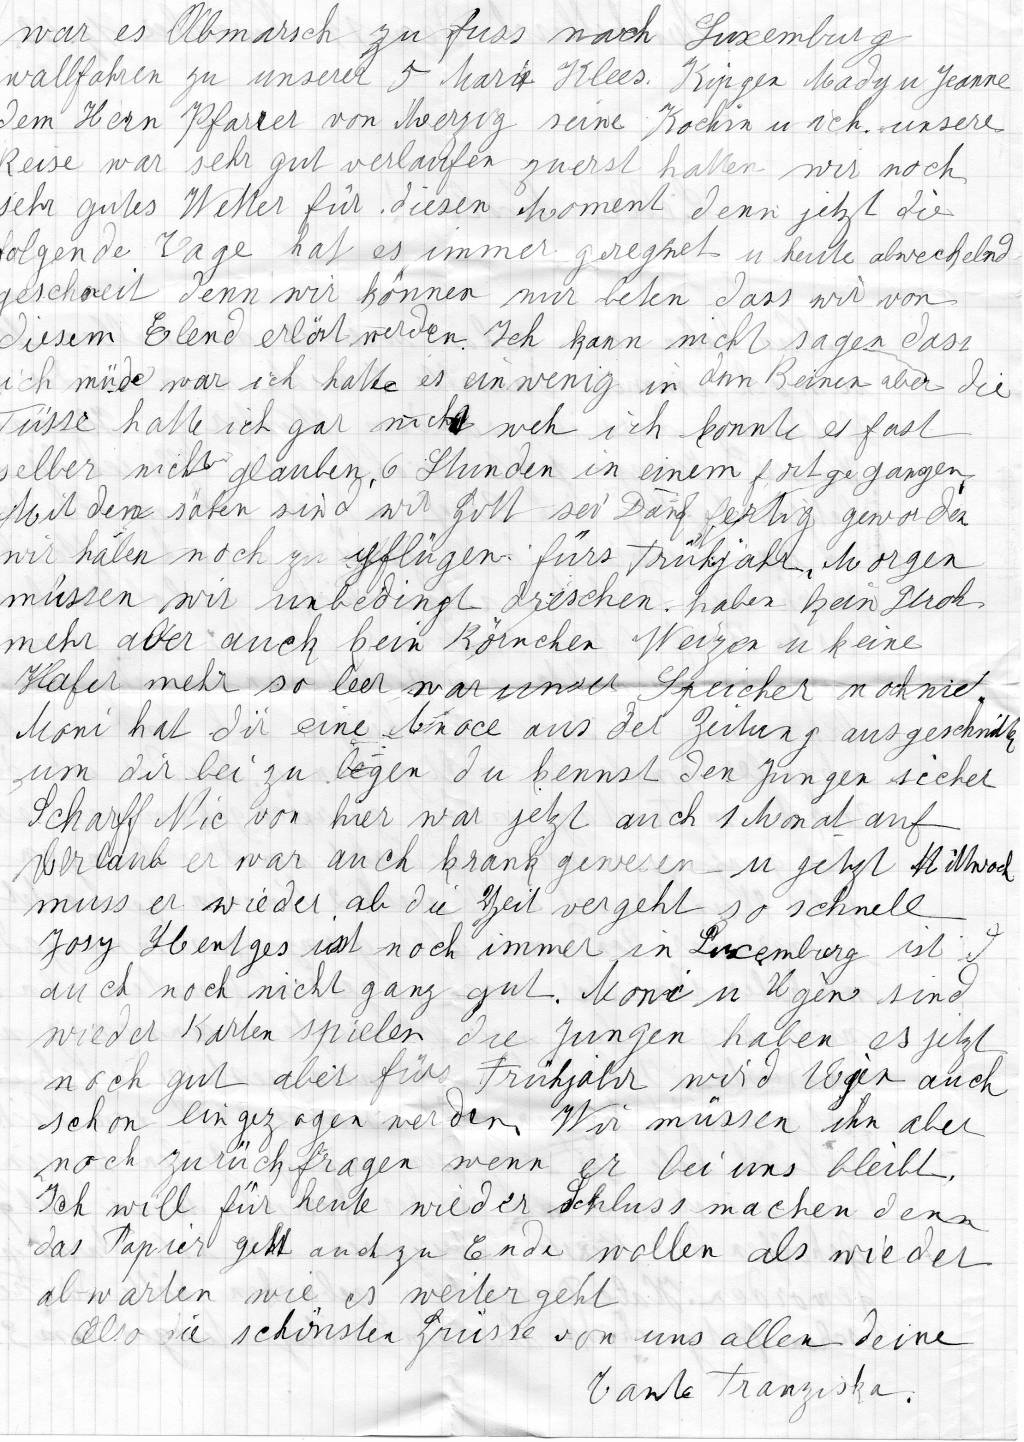 war es Abmarsch zu fuss nach Luxemburg
wallfahren zu unserer 5 Marie Klees. Kipgen Mady u Jeanne
dem Hern Pfarrer von Merzig seine Köchin u ich. unsere
Reise war sehr gut verlaufen zuerst hatten wir noch
sehr gutes Wetter für diesen Moment denn jetzt die
folgende Tage hat es immer geregnet u heute abwechelnd
geschneit denn wir können nur beten dass wir von
diesem Elend erlöst werden. Ich kann nicht sagen dass
ich müde war ich hatte es ein wenig in den Beinen aber die
Füsse hatte ich gar nicht weh ich konnte es fast
selber nicht glauben, 6 Stunden in einem fort gegangen,
Mit dem säten sind wir Gott sei Dank fertig geworden
wir häten noch zu pflügen fürs Frühjahr, Morgen
müssen wir unbedingt dreschen. haben kein Stroh
mehr aber auch kein Körnchen Weizen u keine
Hafer mehr so leer war unser Speicher noch nie.
Moni hat dir eine Anoce aus der Zeitung ausgeschnitten
um dir bei zu legen du kennst den Jungen sicher
Scharff Nic von hier war jetzt auch 1 Monat auf
Urlaub er war auch krank gewesen u jetzt Mittwoch
muss er wieder ab die Zeit vergeht so schnell
Josy Hentges ist noch immer in Luxemburg ist
auch noch nicht ganz gut. Moni u Ugén sind
wieder Karten spielen die Jungen haben es jetzt
noch gut aber fürs Frühjahr wird Ugén auch
schon eingezogen werden, Wir müssen ihn aber
noch zurückfragen wenn er bei uns bleibt.
Ich will für heute wieder Schluss machen denn
das Papier geht auch zu Ende wollen als wieder
abwarten wie es weiter geht
Also die schönsten Grüsse von uns allen deine
Tante Franziska.